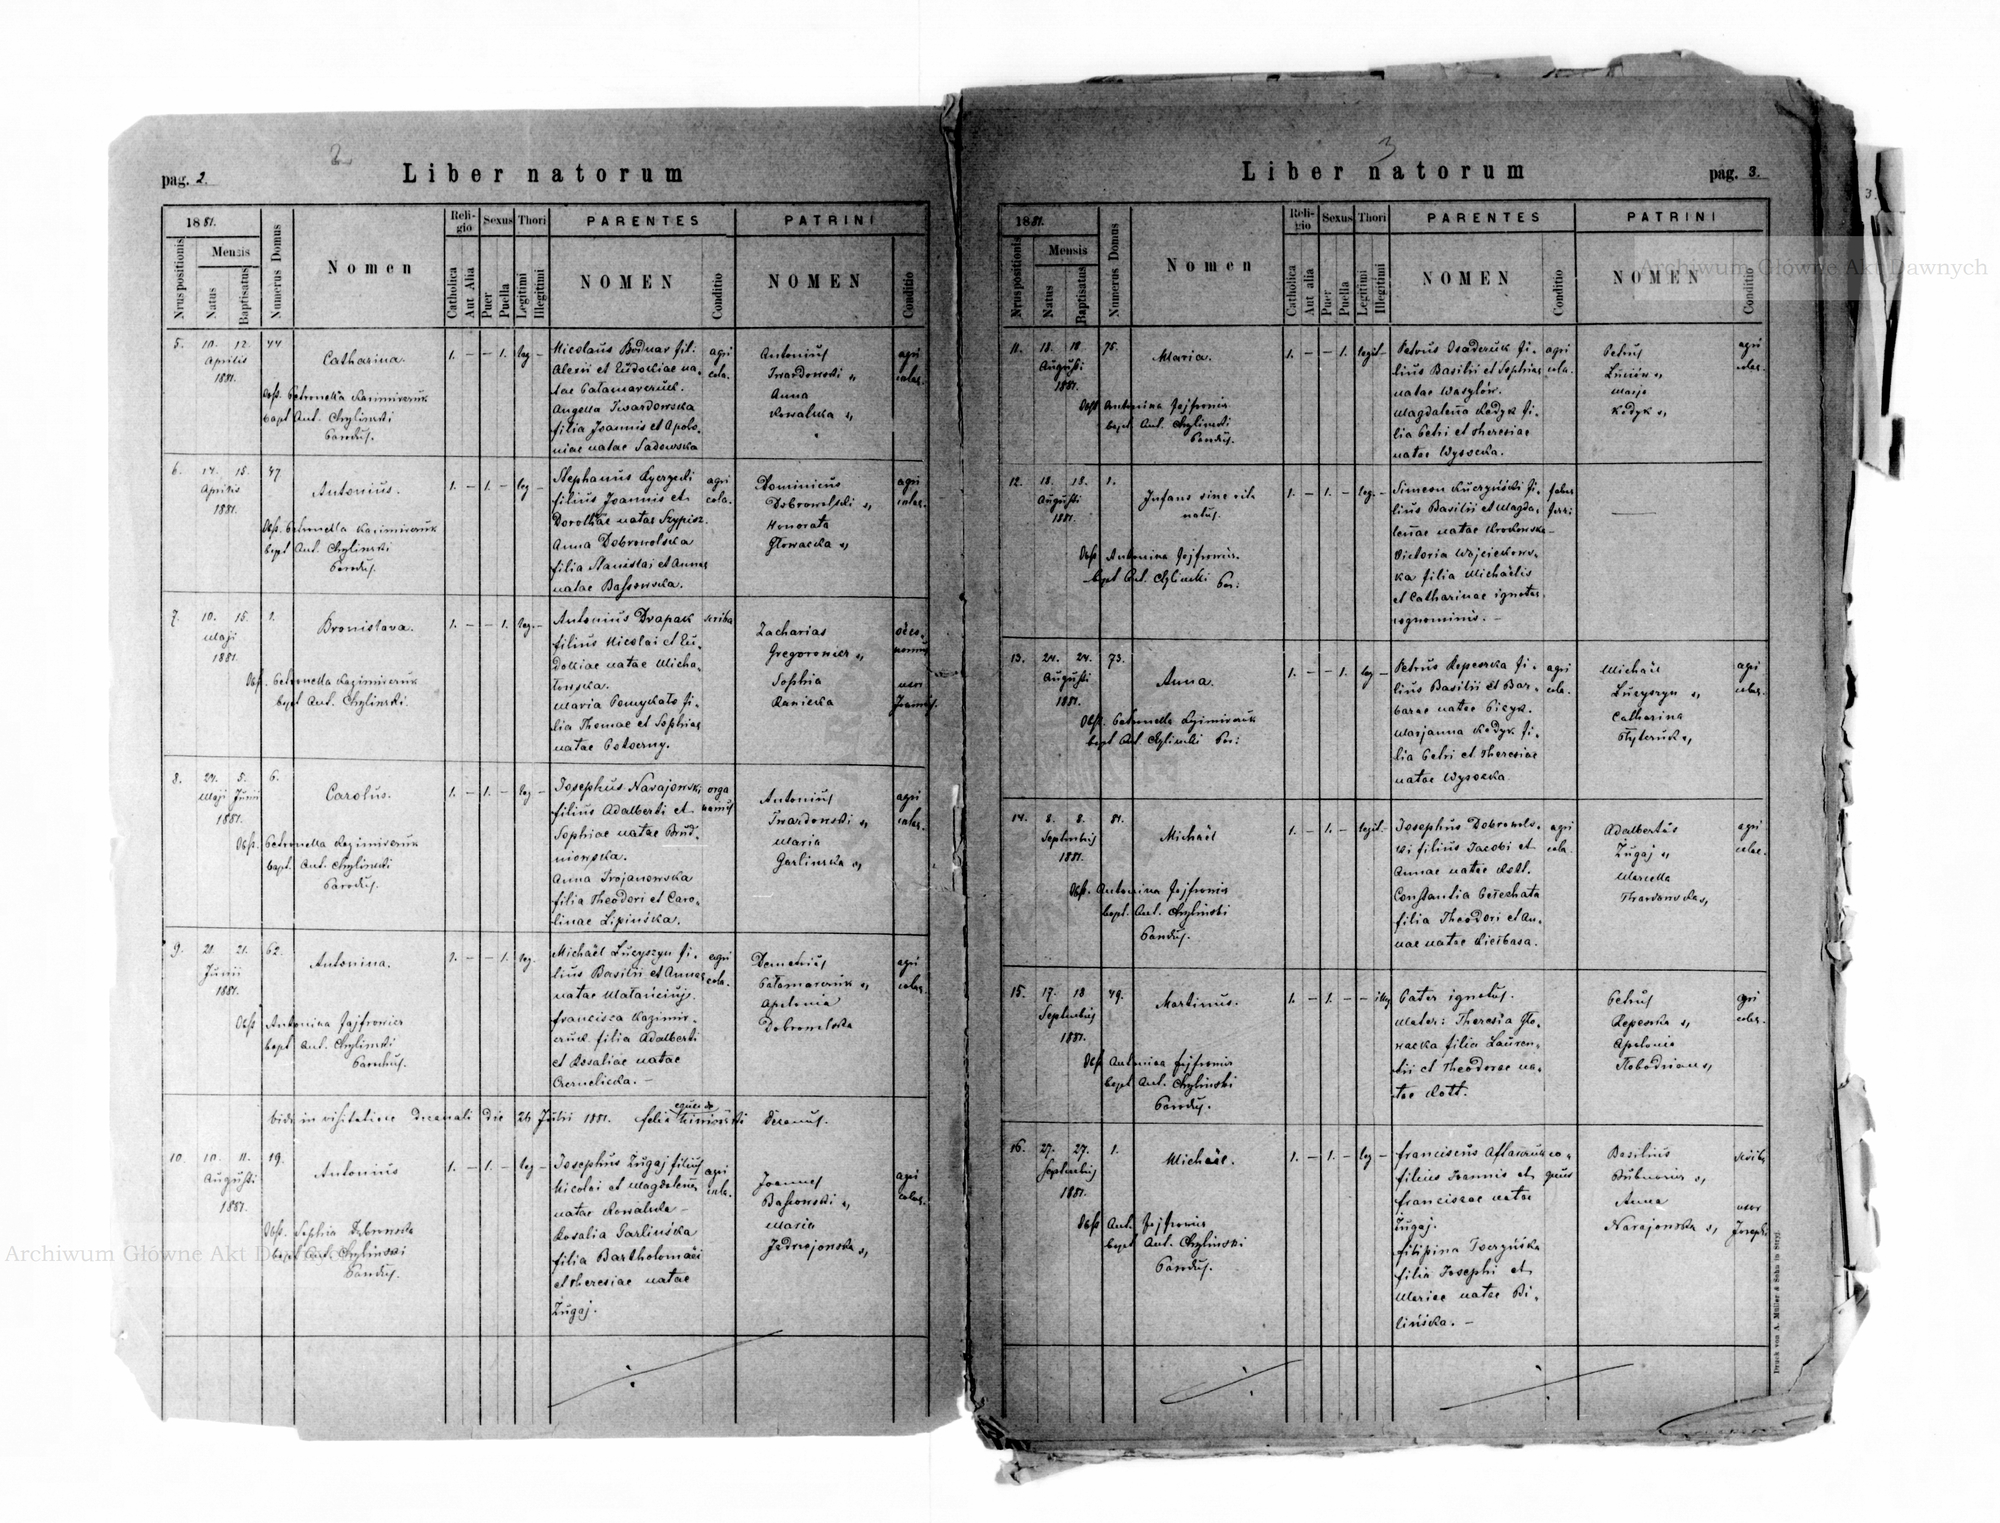 2
Liber natorum
pag. 2.
1881.
Nrus positionis
Mensis
Natus
Baptisatus
Numerus Domus
Nomen
Reli-
gio
Catholica
Aut Alia
Sexus
Puer
Puella
Thori
Legitimi
Illegitimi
PARENTES
NOMEN
Conditio
PATRINI
NOMEN
Conditio
5. 10. 12. 44
Aprilis
1881.
Catharina.
Obst. Petronella Kazimirczuk
bapt Ant. Chylinski
Parochus.
1. - - 1. leg -
Nicolaus Bodnar fili
Alexii et Eudokiae na-
tae Pałamarczuk.
Angella Twardowska
filia Joannis et Apolo-
niae natae Sadowska
agri
cola.
Antonius
Twardowski "
Anna
Kowalska "
agri
colae.
6. 14. 15. 47
Aprilis
1881.
Antonius.
Obst. Petronella Kazimirczuk
bapt Ant. Chylinski
Parochus.
1. - 1. - leg -
filius Joannis et
Dorothae natae Szypisz.
Anna Dobrowolska
filia Stanislai et Annae
natae Bassowska.
agri
cola.
Dominicus
Dobrowolski "
Honorata
Głowacka "
agri
colae.
7. 10. 15. 1.
Maji
1881.
Bronislava.
Obst. Petronella Kazimirczuk
bapt Ant. Chylinski.
1. - - 1. leg. -
Antonius Drapak
filius Nicolai et Eu-
dokiae natae Micha-
łowska.
Maria Pomykato fi-
lia Thomae et Sophiae
natae Potoczny.
scriba
Zacharias
Gregorowicz "
Sophia
Kaniecka
oeco-
nomus
uxor
Joannis.
8. 24. 5. 6.
Maji Junii
1881.
Carolus.
Obst. Petronella Kazimirczuk
bapt. Ant. Chylinski
Parochus.
1. - 1. - leg -
Josephus Narajowski
filius Adalberti et
Sophiae natae Brud-
niowska.
Anna Trojanowska
filia Theodori et Caro-
linae Lipińska.
Antonius
Twardowski "
Maria
Garlinska "
agri
colae.
9. 21. 21. 62.
Junii
1881.
Antonina.
Obst Antonina Jajfrowicz
bapt Ant. Chylinski
Parochus.
1. - - 1. leg.
Michaël Łucyszyn fi-
lius Basilii et Annae
natae Matańciuj.
Francisca Kazimir-
czuk filia Adalberti
et Rosaliae natae
Czernelicka. -
agri
cola.
Demetrius
Pałamarczuk "
Apolonia
Dobrowolska
agri
colae.
Vidi in visitatione decanali die 26 Julii 1881. Decanus.
10. 10. 11. 19.
Augusti
1881.
Antonius
Obst. Sophia
bapt Ant. Chylinski
Parochus.
1. - 1. - leg -
Josephus Zugaj filius
Nicolai et Magdalenae
natae Kowalska -
Rosalia Garlińska
filia Bartholomaei
et Theresiae natae
Zugaj.
agri
cola.
Joannes
Bassowski "
Maria
Jedrzejowska "
agri
colae.
3
Liber natorum
pag. 3.
1881.
Nrus positionis
Mensis
Natus
Baptisatus
Numerus Domus
Nomen
Reli-
gio
Catholica
Aut alia
Sexus
Puer
Puella
Thori
Legitimi
Illegitimi
PARENTES
NOMEN
Conditio
PATRINI
NOMEN
Conditio
11. 18. 18. 75.
Augusti
1881.
Maria.
Obst Antonina Jejfrowicz
bapt Ant. Chylinski
Parochus.
1. - - 1. legit -
Petrus Osaderuk fi-
lius Basilii et Sophiae
natae Wasylów.
Magdalena Kedyk fi-
lia Petri et Theresiae
natae Wysocka.
agri
cola.
Petrus
Luciów "
Maria
Kedyk "
agri
colae.
12. 18. 18. 1.
Augusti
1881.
Infans sine vita
natus.
Obst Antonina Jejfrowicz.
bapt Ant. Chylinski Par:
1. - 1. - leg. -
Simeon Kuczyński fi-
lius Basilii et Magda-
lenae natae Krokowska -
Victoria Wojciechows-
ka filia Michaëlis
et Catharinae ignotae
cognominis. -
faber
ferri
13. 24. 24. 73.
Augusti
1881.
Anna.
bapt Ant Chylinski Par:
1. - - 1. leg -
Petrus Kopeczka fi-
lius Basilii et Bar-
barae natae Picyk.
Marjanna Kedyk fi-
lia Petri et Theresiae
natae Wysocka.
agri
cola.
Michaël
Łucyszyn "
Catharina
agri
colae.
14. 8. 8. 81.
Septembris
1881.
Michaël
Obst. Antonina Jejfrowicz
bapt. Ant. Chylinski
Parochus.
1. - 1. - legit -
Josephus Dobrowols-
ki filius Jacobi et
Annae natae Kott.
Constantia Pełechata
filia Theodori et An-
nae natae Kiełbasa.
agri
cola.
Adalbertus
Zugaj "
Marcella
Thwardowska "
agri
colae.
15. 17. 18 49.
Septembris
1881.
Martinus.
Obst Antonina Jejfrowicz
bapt Ant. Chylinski
Parochus.
1. - 1. - - illeg
Pater ignotus.
Mater: Theresia Gło-
wacka filia Lauren-
tii et Theodorae na-
tae Kott.
Petrus
Kopeczka "
Apolonia
agri
colae.
16. 27. 27. 1.
Septembris
1881.
Michaël.
Obst Ant. Jejfrowicz
bapt Ant. Chylinski
Parochus.
1. - 1. - leg -
filius Joannis et
Franciscae natae
Zugaj.
Filipina Tworzyńska
filia Josephi et
Mariae natae Bi-
lińska. -
co-
quus
Basilius
Bubnowicz "
Anna
Narajowska "
scriba
uxor
Josephi
Druck von A. Müller & Sohn in Stryj.
3.
Archiwum Główne Akt Dawnych
Archiwum Główne Akt Dawnych